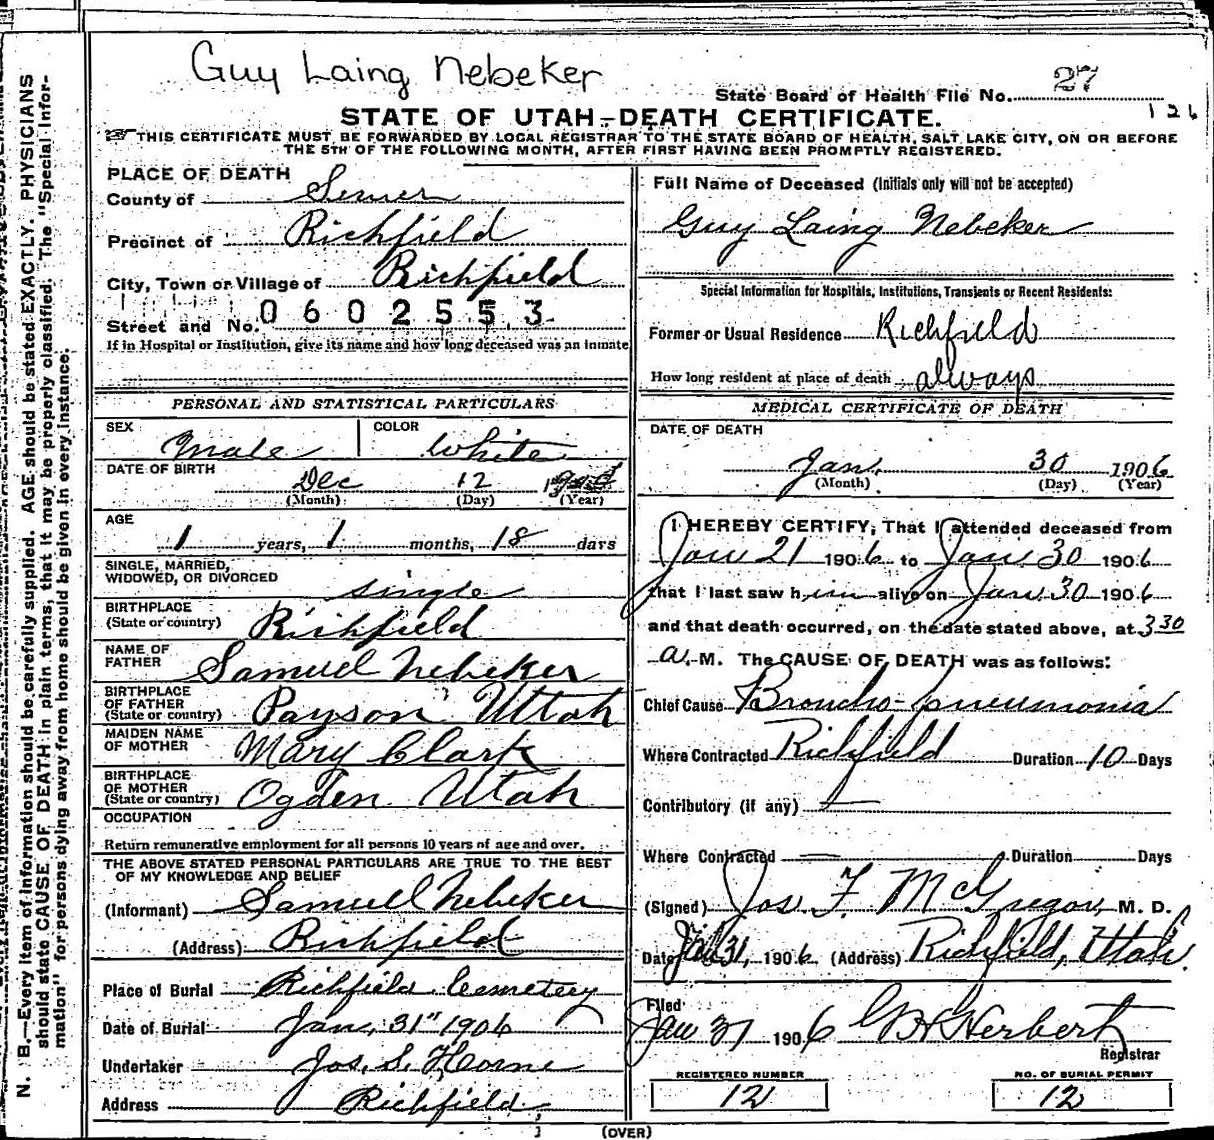 Guy Laing Nebeker
State Board of Health File No. 27
126
STATE OF UTAH—DEATH CERTIFICATE.
THIS CERTIFICATE MUST BE FORWARDED BY LOCAL REGISTRAR TO THE STATE BOARD OF HEALTH, SALT LAKE CITY, ON OR BEFORE
THE 5TH OF THE FOLLOWING MONTH, AFTER FIRST HAVING BEEN PROMPTLY REGISTERED.
PLACE OF DEATH
County of Sevier
Precinct of Richfield
City, Town or Village of Richfield
Street and No. 0602553
If in Hospital or Institution, give its name and how long deceased was an inmate
PERSONAL AND STATISTICAL PARTICULARS
SEX Male COLOR White
DATE OF BIRTH Dec 12
(Month) (Day) (Year)
AGE
1 years, 1 months, 18 days
SINGLE, MARRIED,
WIDOWED, OR DIVORCED single
BIRTHPLACE
(State or country) Richfield
NAME OF
FATHER Samuel Nebeker
BIRTHPLACE
OF FATHER
(State or country) Payson Utah
MAIDEN NAME
OF MOTHER Mary Clark
BIRTHPLACE
OF MOTHER
(State or country) Ogden Utah
OCCUPATION
Return remunerative employment for all persons 10 years of age and over.
THE ABOVE STATED PERSONAL PARTICULARS ARE TRUE TO THE BEST
OF MY KNOWLEDGE AND BELIEF
(Informant) Samuel Nebeker
(Address) Richfield
Place of Burial Richfield Cemetery
Date of Burial Jan, 31" 1906
Undertaker Jos. S. Horne
Address Richfield
Full Name of Deceased (Initials only will not be accepted)
Guy Laing Nebeker
Special Information for Hospitals, Institutions, Transients or Recent Residents:
Former or Usual Residence Richfield
How long resident at place of death allways
MEDICAL CERTIFICATE OF DEATH
DATE OF DEATH
Jan. 30 1906
(Month) (Day) (Year)
I HEREBY CERTIFY, That I attended deceased from
Jan 21 1906 to Jan 30 1906
that I last saw him alive on Jan. 30 1906
and that death occurred, on the date stated above, at 3 30
a. M. The CAUSE OF DEATH was as follows:
Chief Cause Broncho-pneumonia
Where Contracted Richfield Duration 10 Days
Contributory (if any) —
Where Contracted — Duration Days
(Signed) Jos. F. McGregor, M. D.
Date 31, 1906 (Address) Richfield, Utah.
Filed
Jan 31 1906 Herbert
Registrar
REGISTERED NUMBER
12
NO. OF BURIAL PERMIT
12
(OVER)
N. B.—Every item of information should be carefully supplied. AGE should be stated EXACTLY. PHYSICIANS
should state CAUSE OF DEATH in plain terms, that it may be properly classified. The "Special Infor-
mation" for persons dying away from home should be given in every instance.